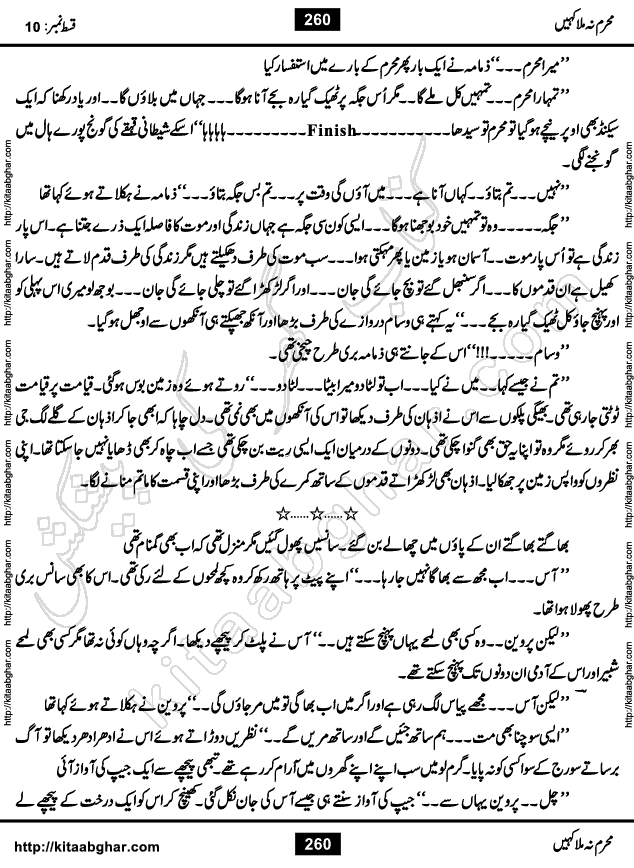 محرم نہ ملا کہیں 260 قسط نمبر: 10
’’میرا محرم۔۔۔‘‘ ذمامہ نے ایک بار پھر محرم کے بارے میں استفسار کیا
’’تمہارا محرم۔۔۔تمہیں کل ملے گا۔۔مگر اُس جگہ پر ٹھیک گیارہ بجے آنا ہوگا۔۔۔ جہاں میں بلاؤں گا۔۔اور یاد رکھنا کہ ایک
سیکنڈ بھی اوپر نیچے ہوگیا تو محرم تو سیدھا۔۔۔۔۔۔۔۔۔۔۔Finish۔۔۔۔۔۔۔۔۔ہاہاہا‘‘ اسکے شیطانی قہقہے کی گونج پورے ہال میں
گونجنے لگی۔
’’نہیں۔۔۔تم بتاؤ۔۔کہاں آنا ہے۔۔۔میں آؤں گی وقت پر۔۔۔تم بس جگہ بتاؤ۔۔‘‘ ذمامہ نے ہکلاتے ہوئے کہا تھا
’’جگہ۔۔۔۔۔وہ تو تمہیں خود بوجھنا ہوگا۔۔۔ایسی کون سی جگہ ہے جہاں زندگی اور موت کا فاصلہ ایک ذرے جتنا ہے۔اس پار
زندگی ہے تو اُس پار موت۔۔آسمان ہو یا زمین یا پھر مہکتی ہوا۔۔۔سب موت کی طرف دھکیلتے ہیں مگر زندگی کی طرف قدم لاتے ہیں۔سارا
کھیل ہے ان قدموں کا۔۔۔اگر سنبھل گئے تو بچ جائے گی جان۔۔۔اور اگر لڑکھڑا گئے تو چلی جائے گی جان۔۔بوجھ لو میری اس پہلی کو
اور پہنچ جاؤ کل ٹھیک گیارہ بجے۔۔۔‘‘ یہ کہتے ہی وسام دروازے کی طرف بڑھا اور آنکھ جھپکتے ہی آنکھوں سے اوجھل ہوگیا۔
’’وسام۔۔۔۔۔!!!‘‘ اس کے جاتے ہی ذمامہ بری طرح چیخی تھی۔
’’تم نے جیسے کہا۔۔۔میں نے کیا۔۔۔اب تو لٹا دو میرا بیٹا۔۔لٹا دو۔۔‘‘ روتے ہوئے وہ زمین بوس ہوگئی۔قیامت پر قیامت
ٹوٹتی جا رہی تھی۔بھیگی پلکوں سے اس نے اذہان کی طرف دیکھا تو اس کی آنکھوں میں بھی نمی تھی۔دل چاہا کہ ابھی جا کر اذہان کے گلے لگ جی
بھر کر روئے مگر وہ تو اپنا یہ حق بھی گنوا چکی تھی۔دونوں کے درمیان ایک ایسی ریت بن چکی تھی جسے اب چاہ کر بھی ڈھایا نہیں جاسکتا تھا۔اپنی
نظروں کو واپس زمین پر جھکا لیا۔اذہان بھی لڑکھڑاتے قدموں کے ساتھ کمرے کی طرف بڑھا اور اپنی قسمت کا ماتم منانے لگا۔
☆......☆......☆
بھاگتے بھاگتے ان کے پاؤں میں چھالے بن گئے۔سانسیں پھول گئیں مگر منزل تھی کہ اب بھی گمنام تھی
’’آس۔۔۔اب مجھ سے بھاگا نہیں جا رہا۔۔۔‘‘ اپنے پیٹ پر ہاتھ رکھ کر وہ کچھ لمحوں کے لئے رکی تھی۔اس کا بھی سانس بری
طرح پھولا ہوا تھا۔
’’لیکن پروین۔۔وہ کسی بھی لمحے یہاں پہنچ سکتے ہیں۔۔‘‘ آس نے پلٹ کر پیچھے دیکھا۔اگرچہ وہاں کوئی نہ تھا مگر کسی بھی لمحے
شبیر اور اس کے آدمی ان دونوں تک پہنچ سکتے تھے۔
’’لیکن آس۔۔۔مجھے پیاس لگ رہی ہے اور اگر میں اب بھاگی تو میں مر جاؤں گی۔۔‘‘ پروین نے ہکلاتے ہوئے کہا تھا
’’ایسی سوچنا بھی مت۔۔۔ہم ساتھ جئیں گے اور ساتھ مریں گے۔۔‘‘ نظریں دوڑاتے ہوئے اس نے ادھر ادھر دیکھا تو آگ
برساتے سورج کے سوا کسی کو نہ پایا۔گرم لو میں سب اپنے اپنے گھروں میں آرام کر رہے تھے۔تبھی پیچھے سے ایک جیپ کی آواز آئی
’’چل۔۔پروین یہاں سے۔۔‘‘ جیپ کی آواز سنتے ہی جیسے آس کی جان نکل گئی۔کھینچ کر اس کو ایک درخت کے پیچھے لے
http://kitaabghar.com
http://kitaabghar.com
http://kitaabghar.com
http://kitaabghar.com
http://kitaabghar.com
http://kitaabghar.com
http://kitaabghar.com
http://kitaabghar.com
http://kitaabghar.com
http://kitaabghar.com
http://kitaabghar.com
http://kitaabghar.com
کتاب گھر کی پیشکش
kitaabghar.com
محرم نہ ملا کہیں 260 http://kitaabghar.com